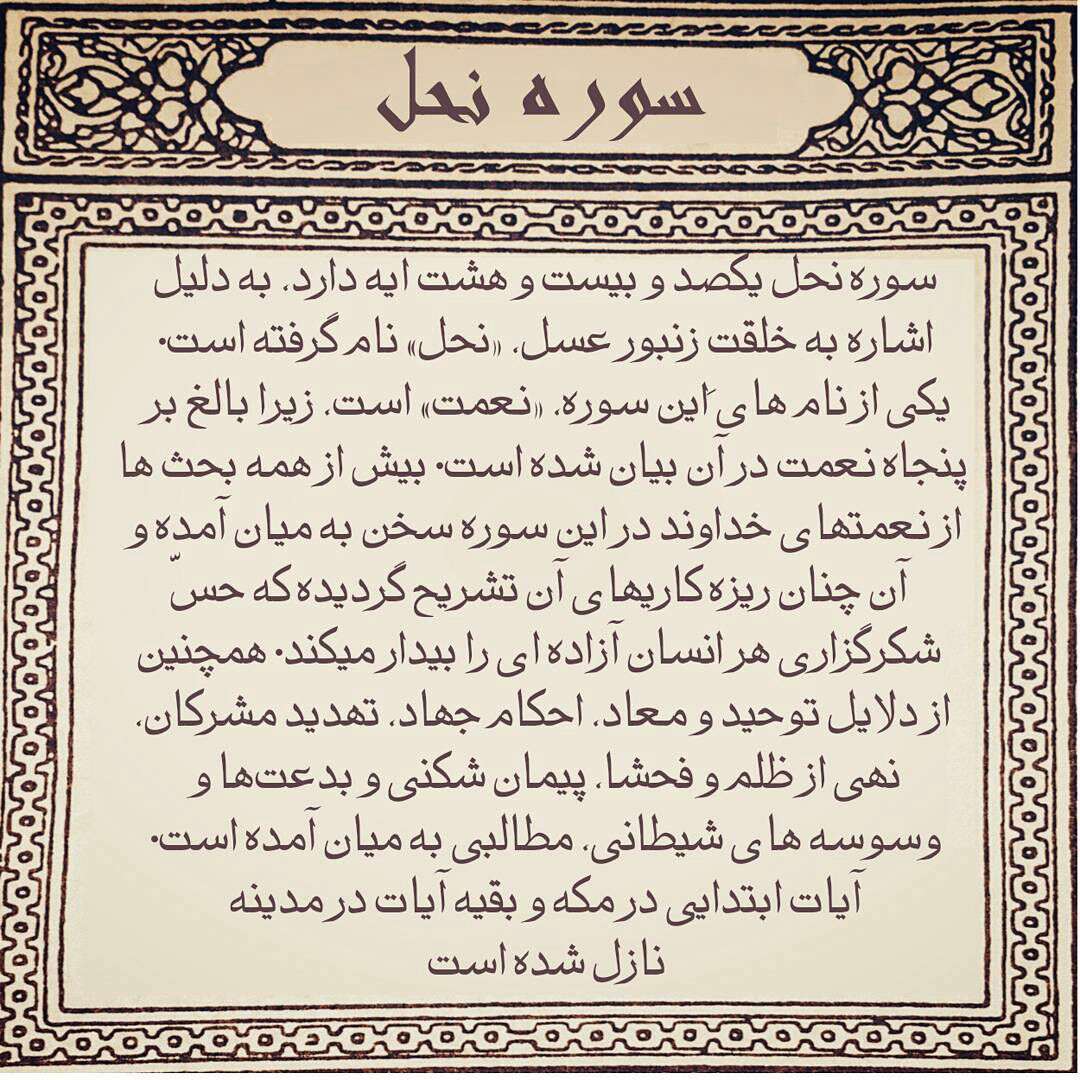 سوره نحل
سوره نحل یکصد و بیست و هشت ایه دارد، به دلیل
اشاره به خلقت زنبور عسل، «نحل» نام گرفته است.
یکی از نام های این سوره، «نعمت» است، زیرا بالغ بر
پنجاه نعمت در آن بیان شده است. بیش از همه بحث ها
از نعمتهای خداوند در این سوره سخن به میان آمده و
آن چنان ریزه کاریهای آن تشریح گردیده که حسّ
شکرگزاری هر انسان آزاده ای را بیدار میکند. همچنین
از دلایل توحید و معاد، احکام جهاد، تهدید مشرکان،
نهی از ظلم و فحشا، پیمان شکنی و بدعت‌ها و
وسوسه های شیطانی، مطالبی به میان آمده است.
آیات ابتدایی در مکه و بقیه آیات در مدینه
نازل شده است